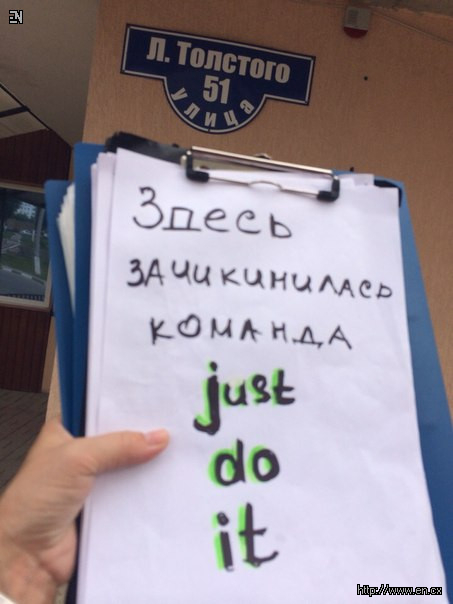 EN
Л. Толстого
51
улица
Здесь
зачикинилась
команда
just
do
it
http://www.en.cx